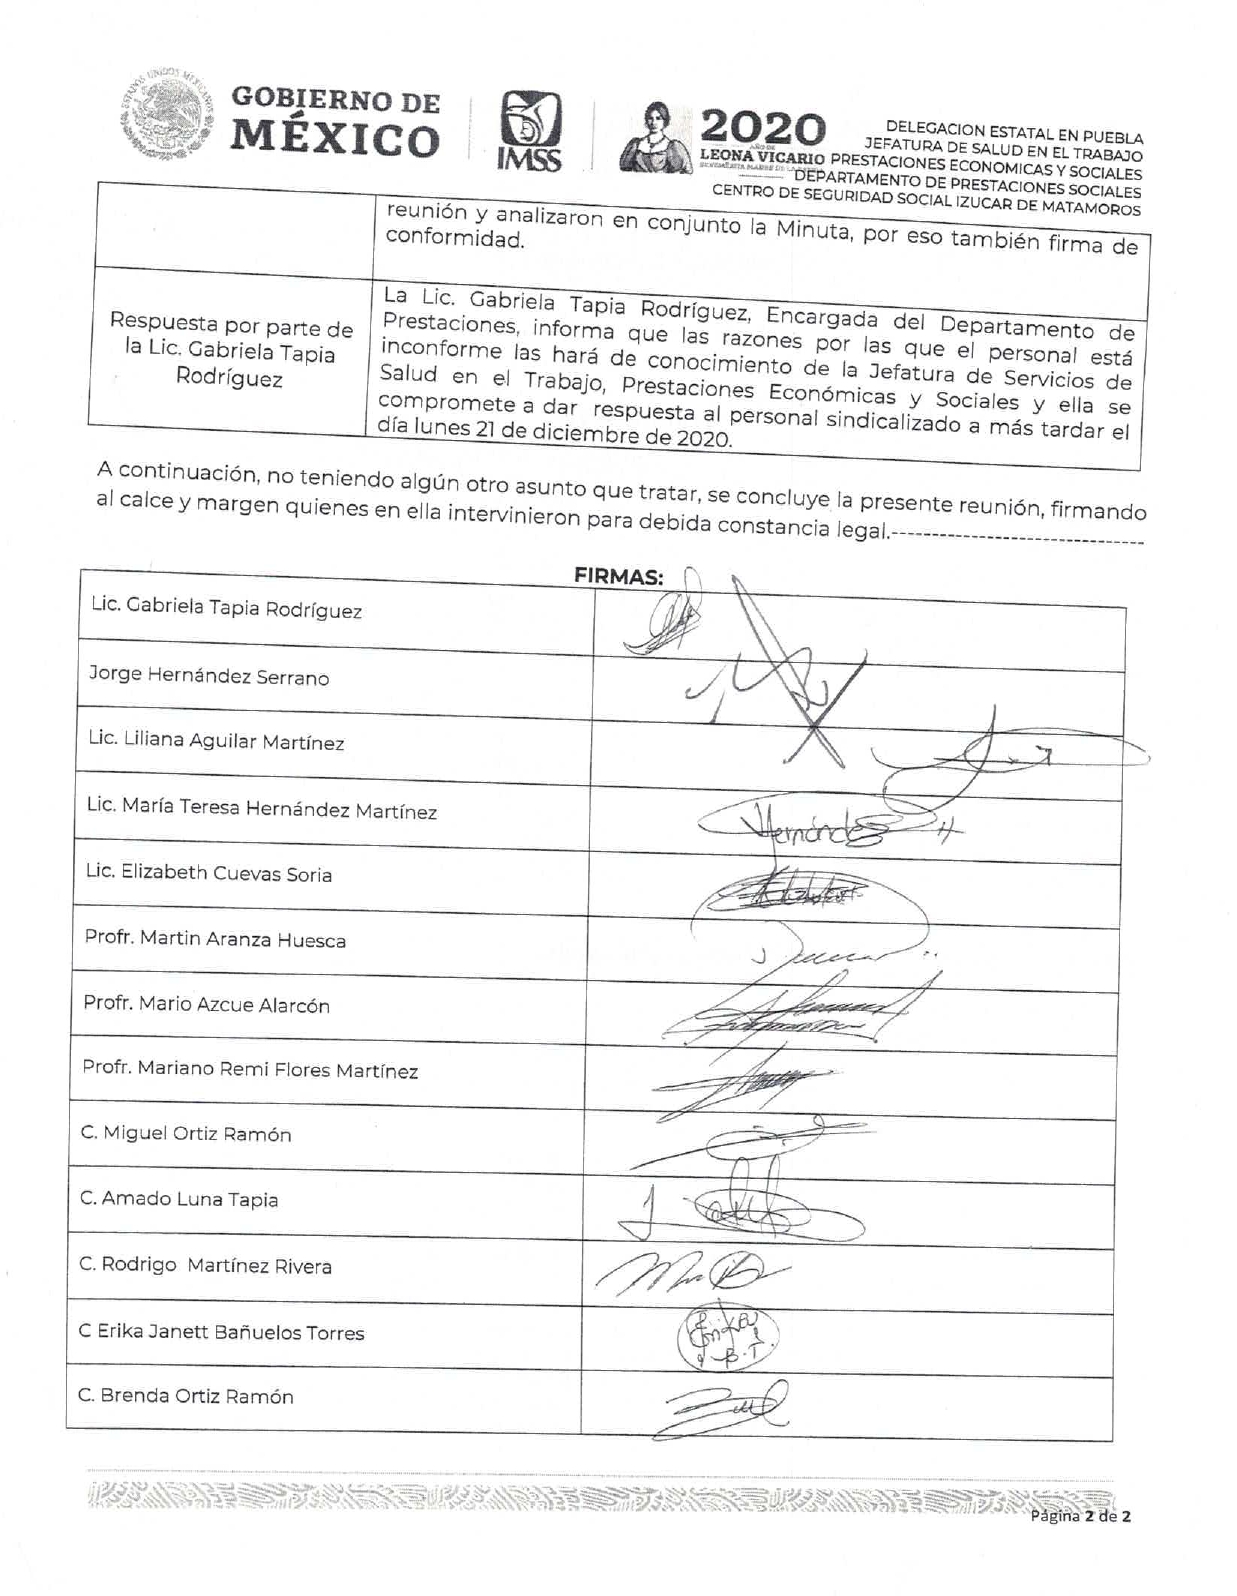 GOBIERNO DE
MÉXICO
IMSS
2020
AÑO DE
LEONA VICARIO
DELEGACION ESTATAL EN PUEBLA
JEFATURA DE SALUD EN EL TRABAJO
PRESTACIONES ECONOMICAS Y SOCIALES
DEPARTAMENTO DE PRESTACIONES SOCIALES
CENTRO DE SEGURIDAD SOCIAL IZUCAR DE MATAMOROS
reunión y analizaron en conjunto la Minuta, por eso también firma de
conformidad.
Respuesta por parte de
la Lic. Gabriela Tapia
Rodríguez
La Lic. Gabriela Tapia Rodríguez, Encargada del Departamento de
Prestaciones, informa que las razones por las que el personal está
inconforme las hará de conocimiento de la Jefatura de Servicios de
Salud en el Trabajo, Prestaciones Económicas y Sociales y ella se
compromete a dar respuesta al personal sindicalizado a más tardar el
día lunes 21 de diciembre de 2020.
A continuación, no teniendo algún otro asunto que tratar, se concluye la presente reunión, firmando
al calce y margen quienes en ella intervinieron para debida constancia legal.-------------------------------
FIRMAS:
Lic. Gabriela Tapia Rodríguez
Jorge Hernández Serrano
Lic. Liliana Aguilar Martínez
Lic. María Teresa Hernández Martínez
Hernández
Lic. Elizabeth Cuevas Soria
Profr. Martin Aranza Huesca
Profr. Mario Azcue Alarcón
Profr. Mariano Remi Flores Martínez
C. Miguel Ortiz Ramón
C. Amado Luna Tapia
C. Rodrigo Martínez Rivera
C Erika Janett Bañuelos Torres
C. Brenda Ortiz Ramón
Página 2 de 2